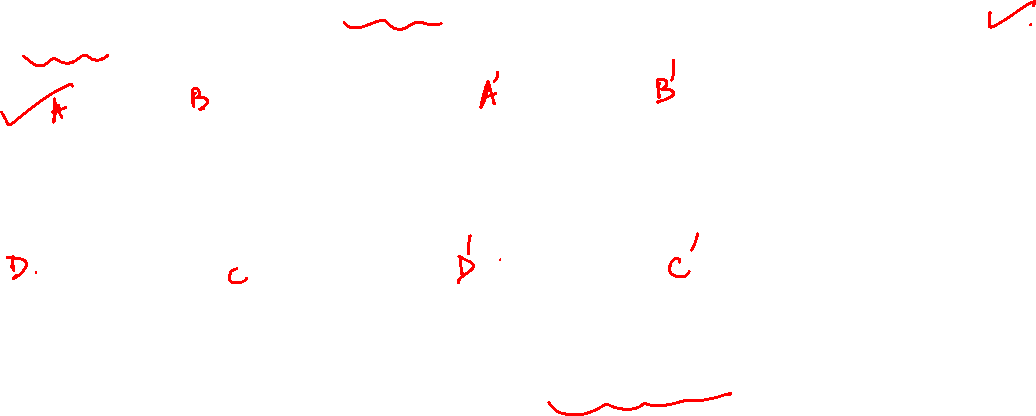 A B A' B'
D. C D' C'